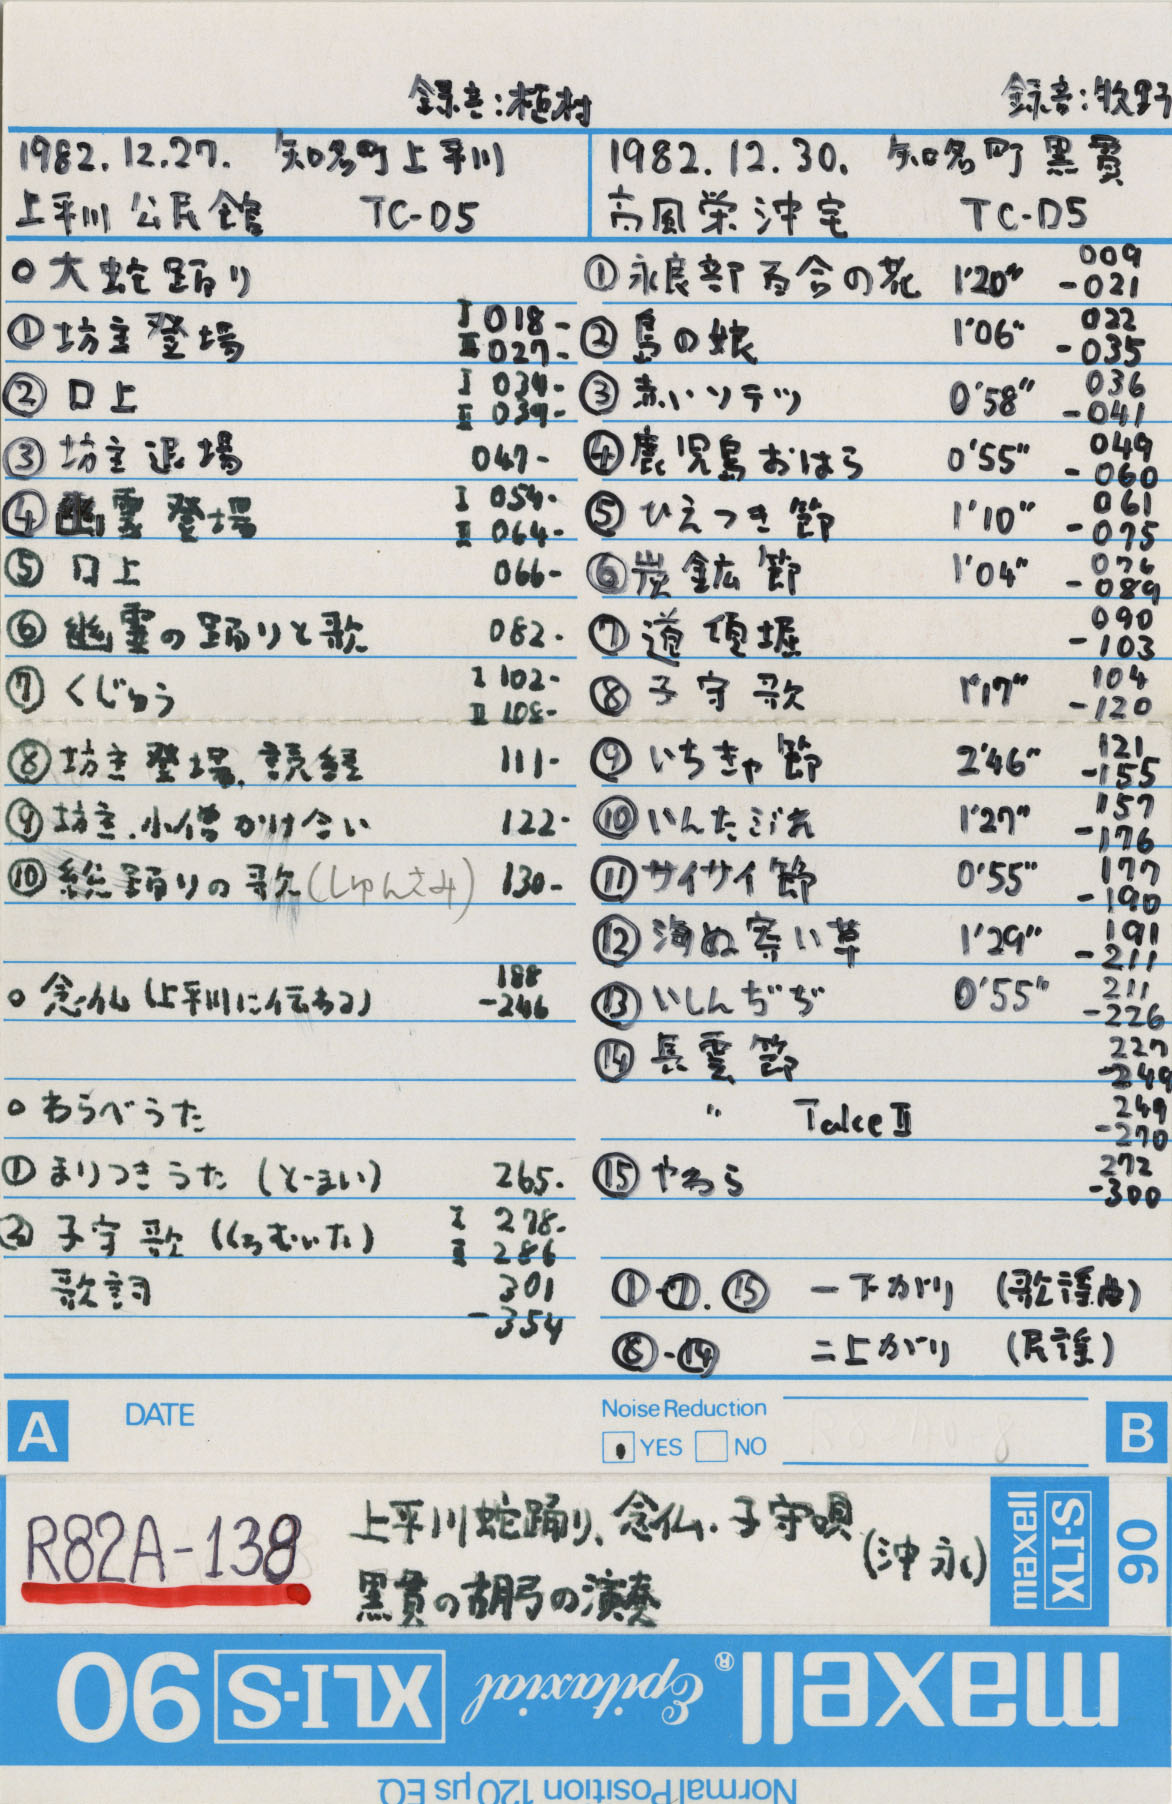 録音:植村
1982.12.27. 知名町上平川
上平川公民館 TC-D5
○大蛇踊り
①坊主登場 I 018- II 027-
②口上 I 034- II 039-
③坊主退場 047-
④幽霊登場 I 054- II 064-
⑤口上 066-
⑥幽霊の踊りと歌 082-
⑦くじゅう I 102- II 108-
⑧坊主登場、読経 111-
⑨坊主、小僧かけ合い 122-
⑩総踊りの歌(しゅんさみ) 130-
○念仏(上平川に伝わる) 188-246
○わらべうた
①まりつきうた(とーまい) 265-
②子守歌 I 278- II 286
歌詞 301-354
録音:牧野
1982.12.30. 知名町黒貫
高風栄沖宅 TC-D5
①永良部百合の花 1'20" 009-021
②島の娘 1'06" 022-035
③赤いソテツ 0'58" 036-041
④鹿児島おはら 0'55" 049-060
⑤ひえつき節 1'10" 061-075
⑥炭鉱節 1'04" 076-089
⑦道傾堀 090-103
⑧子守歌 1'17" 104-120
⑨いちきゃ節 2'46" 121-155
⑩いんたぶれ 1'27" 157-176
⑪サイサイ節 0'55" 177-190
⑫海ぬ寄い草 1'29" 191-211
⑬いしんぢぢ 0'55" 211-226
⑭長雲節 227-249
〃 Take II 249-270
⑮やわら 272-300
①-⑦.⑮ 一下がり (歌謡曲)
⑧-⑭ 二上がり (民謡)
A DATE
Noise Reduction
YES NO
B
R82A-138
上平川蛇踊り、念仏、子守唄
黒貫の胡弓の演奏
(沖永)
maxell XLI-S 90
maxell® Epitaxial XLI-S 90
Normal Position 120 μs EQ